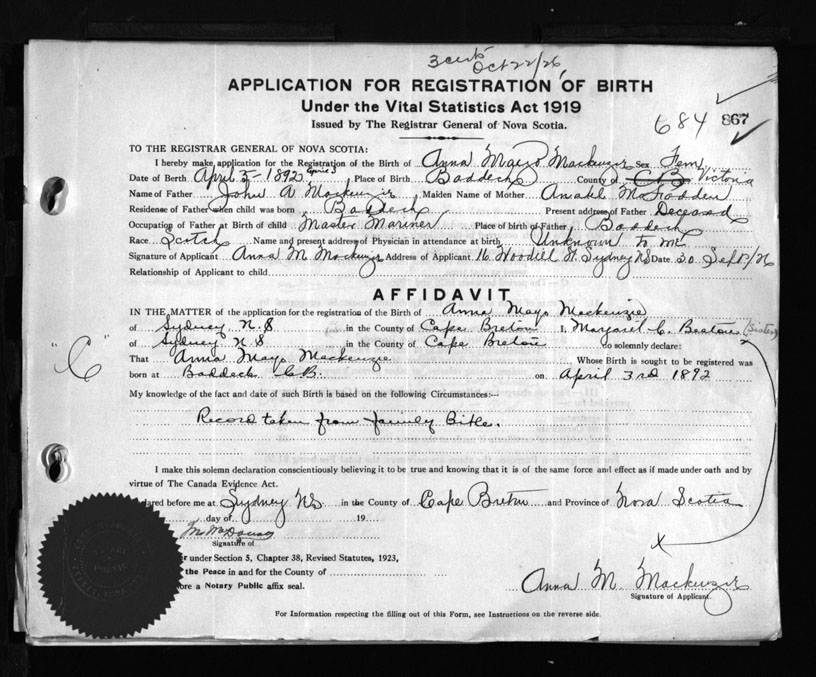 3 certs
Oct 22/26
APPLICATION FOR REGISTRATION OF BIRTH
Under the Vital Statistics Act 1919
Issued by The Registrar General of Nova Scotia.
684 867
TO THE REGISTRAR GENERAL OF NOVA SCOTIA:
I hereby make application for the Registration of the Birth of Anna Mayo Mackenzie Sex Fem
Date of Birth April 3 - 1892 April 3 Place of Birth Baddeck County of C B Victoria
Name of Father John A Mackenzie Maiden Name of Mother McFadden
Residense of Father when child was born Baddeck Present address of Father Deceased
Occupation of Father at Birth of child Master Mariner Place of birth of Father Baddeck
Race Scotch Name and present address of Physician in attendance at birth Unknown to me
Signature of Applicant Anna M Mackenzie Address of Applicant 16 Woodill St. Sydney NS Date 30 Sept/26
Relationship of Applicant to child
AFFIDAVIT
IN THE MATTER of the application for the registration of the Birth of Anna Mayo Mackenzie
of Sydney N.S in the County of Cape Breton I, Margaret C. Beaton (Sister)
of Sydney N S in the County of Cape Breton do solemnly declare:
"C"
That Anna Mayo Mackenzie Whose Birth is sought to be registered was
born at Baddeck C.B. on April 3rd 1892
My knowledge of the fact and date of such Birth is based on the following Circumstances:—
Record taken from family Bible.
I make this solemn declaration conscientiously believing it to be true and knowing that it is of the same force and effect as if made under oath and by
virtue of The Canada Evidence Act.
lared before me at Sydney NS in the County of Cape Breton and Province of Nova Scotia
day of 19
Signature of
r under Section 5, Chapter 38, Revised Statutes, 1923,
the Peace in and for the County of
ore a Notary Public affix seal.
X
Anna M. Mackenzie
Signature of Applicant.
For Information respecting the filling out of this Form, see Instructions on the reverse side.